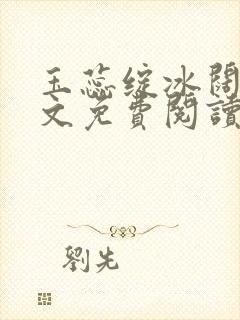 玉蕊绽冰阔
文免費閱讀
劉先